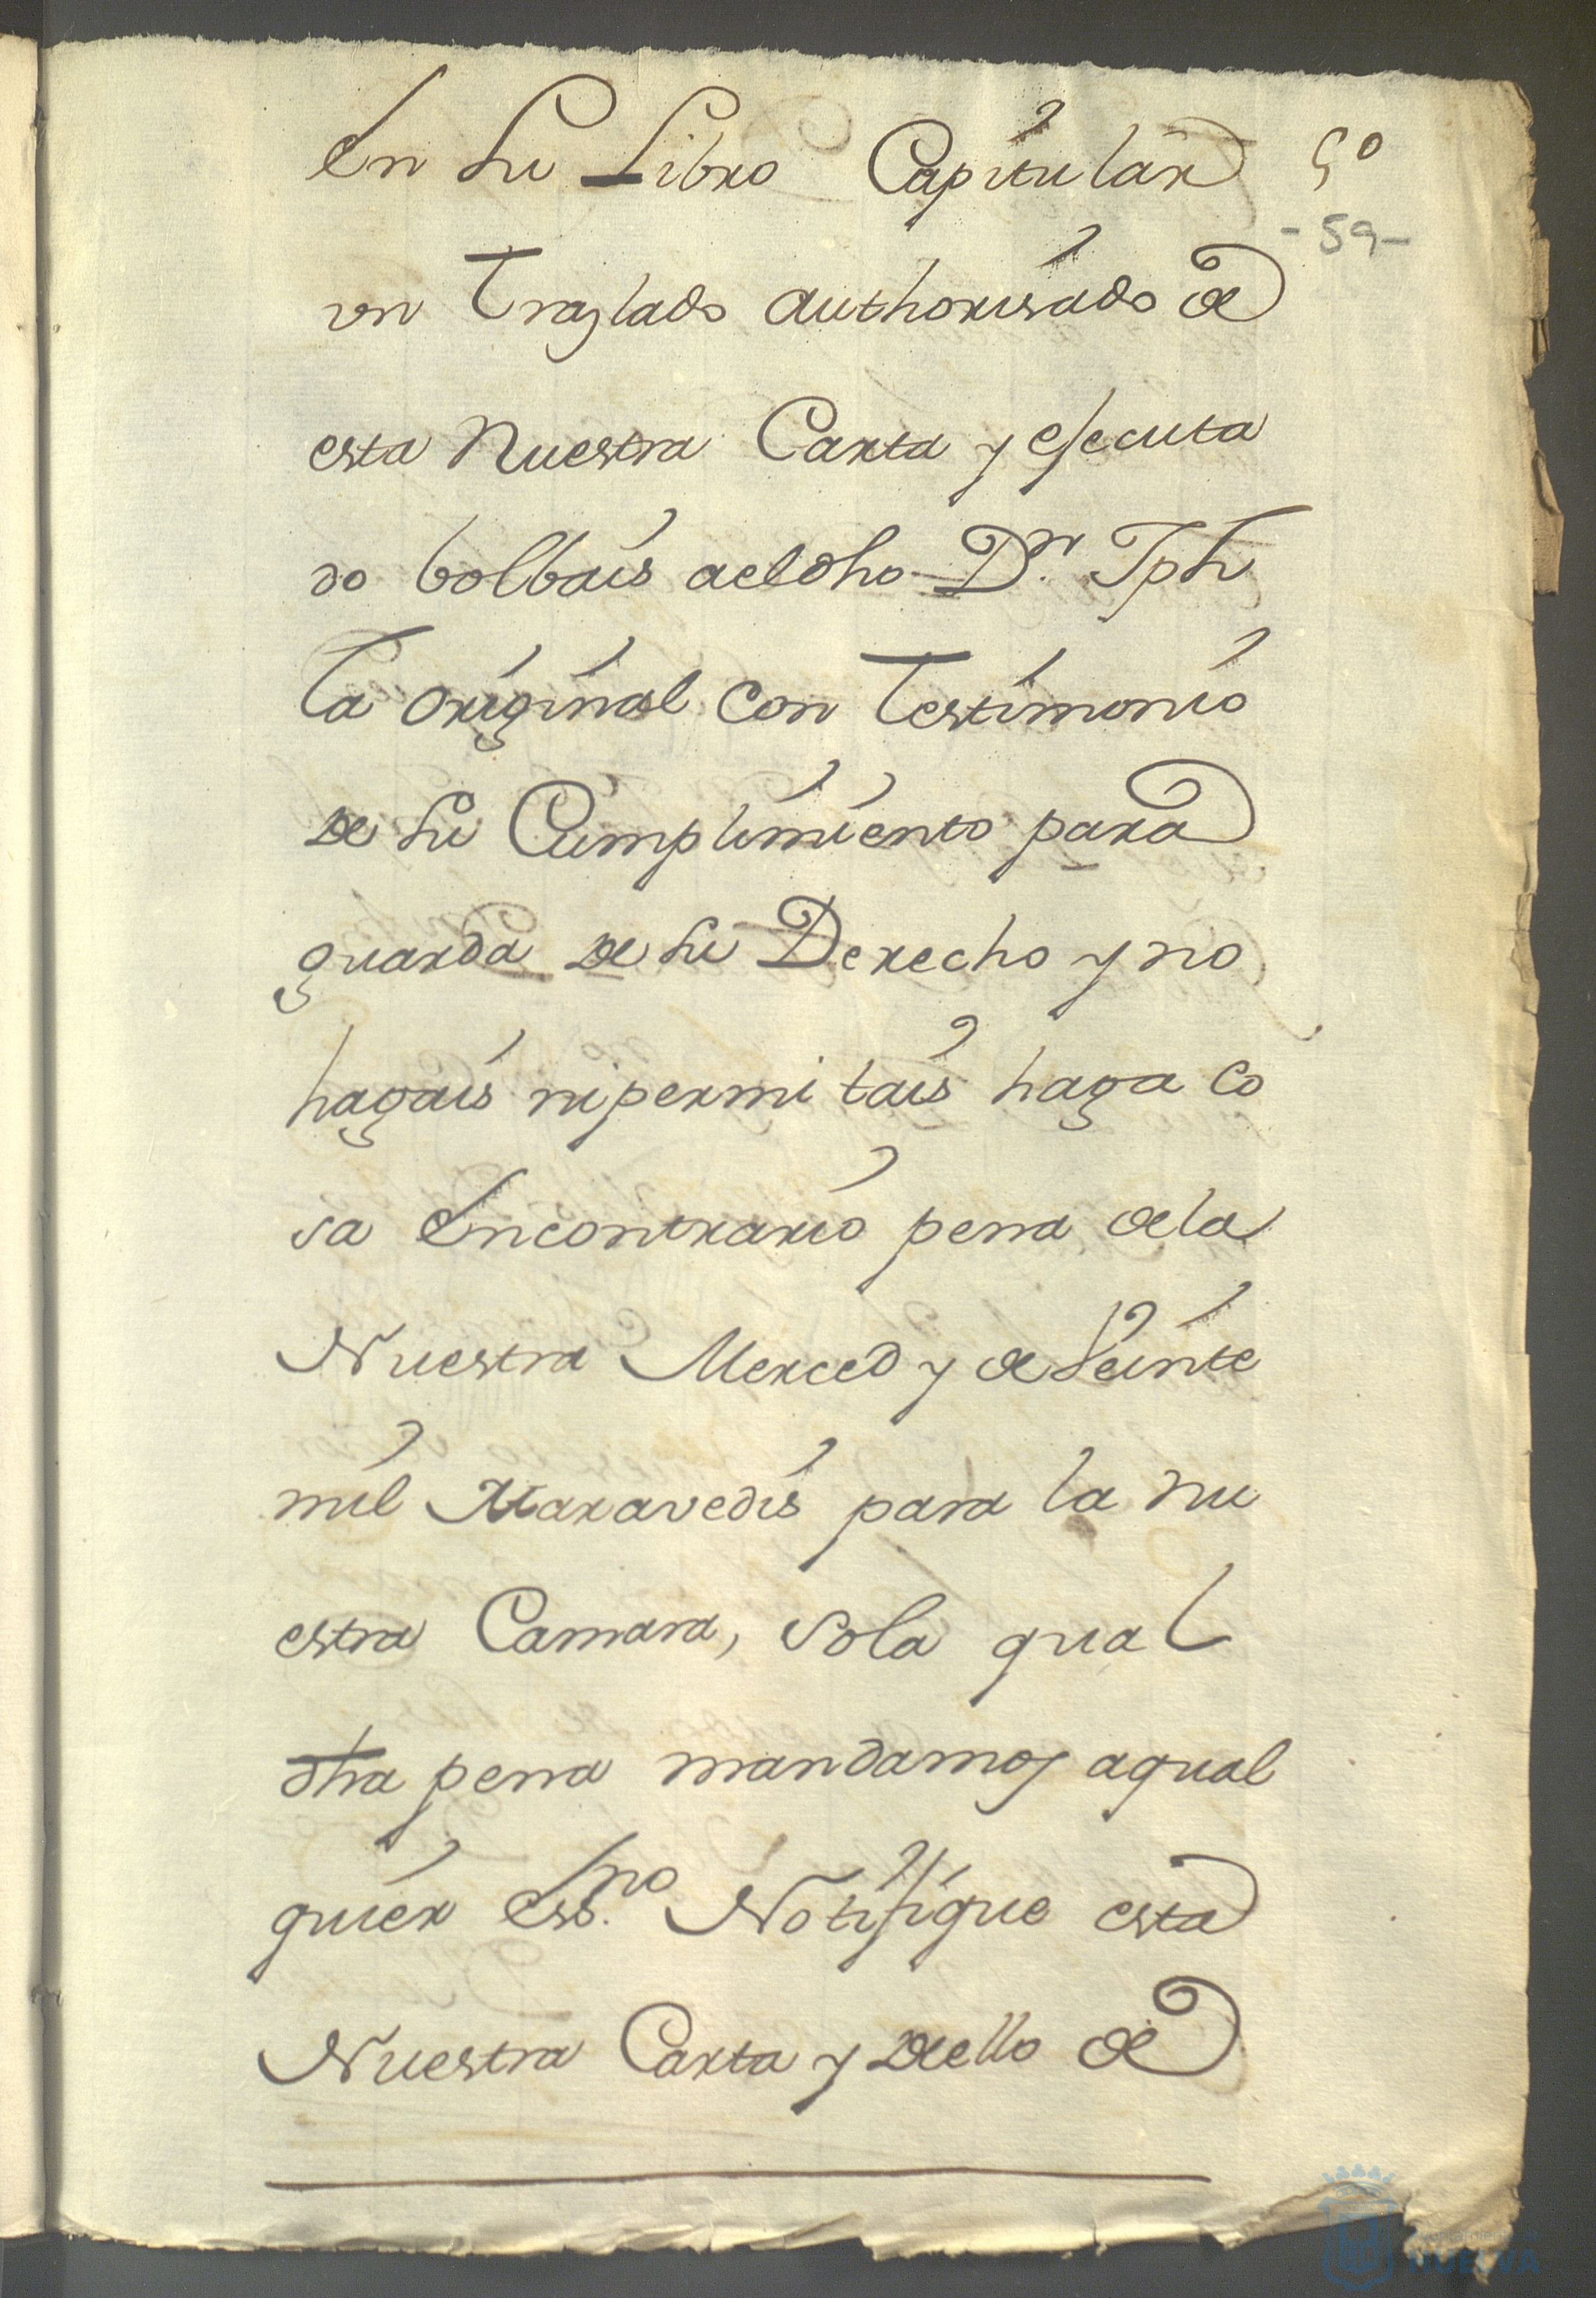 En su Libro Capitular 5º
-59-
vn Traslado authorisado de
esta Nuestra Carta y ejecuta
do bolbais a el dho Dn. Jph
la original con Testimonio
de su Cumplimiento para
guarda de su Derecho y no
hagais ni permitais haga co
sa en contrario pena de la
Nuestra Merced y de Veinte
mil Maravedis para la nu
estra Camara, so la qual
dha pena mandamos a qual
quier essno. Notifique esta
Nuestra Carta y de ello de
HUELVA